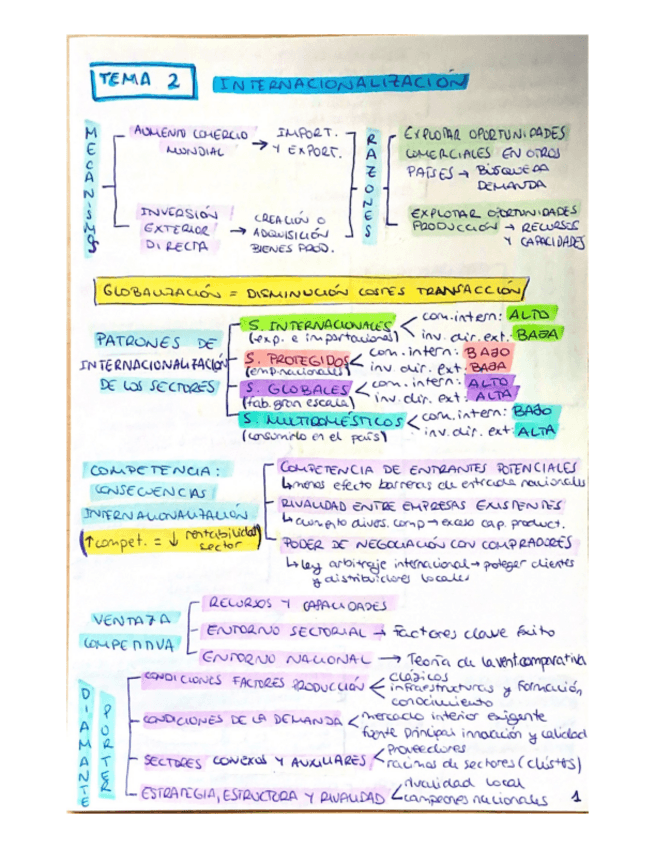 TEMA 2 INTERNACIONALIZACIÓN
MECANISMOS
AUMENTO COMERCIO
MUNDIAL
→ IMPORT.
Y EXPORT.
INVERSIÓN
EXTERIOR
DIRECTA
→ CREACIÓN O
ADQUISICIÓN
BIENES PROD.
RAZONES
EXPLOTAR OPORTUNIDADES
COMERCIALES EN OTROS
PAÍSES → BÚSQUEDA
DEMANDA
EXPLOTAR OPORTUNIDADES
PRODUCCIÓN → RECURSOS
Y CAPACIDADES
GLOBALIZACIÓN = DISMINUCIÓN COSTES TRANSACCIÓN
PATRONES DE
INTERNACIONALIZACIÓN
DE LOS SECTORES
S. INTERNACIONALES
(exp. e importaciones)
com. intern: ALTO
inv. dir. ext: BAJA
S. PROTEGIDOS
(emp. nacionales)
com. intern: BAJO
inv. dir. ext: BAJA
S. GLOBALES
(fab. gran escala)
com. intern: ALTO
inv. dir. ext: ALTA
S. MULTIDOMÉSTICOS
(consumido en el país)
com. intern: BAJO
inv. dir. ext: ALTA
COMPETENCIA:
CONSECUENCIAS
INTERNALIONALIZACIÓN
(↑ compet. = ↓ rentabilidad
sector)
COMPETENCIA DE ENTRANTES POTENCIALES
↳ menos efecto barreras de entrada nacionales
RIVALIDAD ENTRE EMPRESAS EXISTENTES
divers. comp → exceso cap. product.
PODER DE NEGOCIACIÓN CON COMPRADORES
↳ ley arbitraje internacional → proteger clientes
y distribuidores locales
VENTAJA
COMPETITIVA
RECURSOS Y CAPACIDADES
ENTORNO SECTORIAL → Factores clave éxito
ENTORNO NACIONAL → Teoría de la vent. comparativa
DIAMANTE
PORTER
CONDICIONES FACTORES PRODUCCIÓN
clásicos
infraestructuras y formación,
conocimiento
CONDICIONES DE LA DEMANDA
mercado interior exigente
fuente principal innovación y calidad
SECTORES CONEXOS Y AUXILIARES
Proveedores
racimos de sectores (clústes)
ESTRATEGIA, ESTRUCTURA Y RIVALIDAD
rivalidad local
campeones nacionales
1